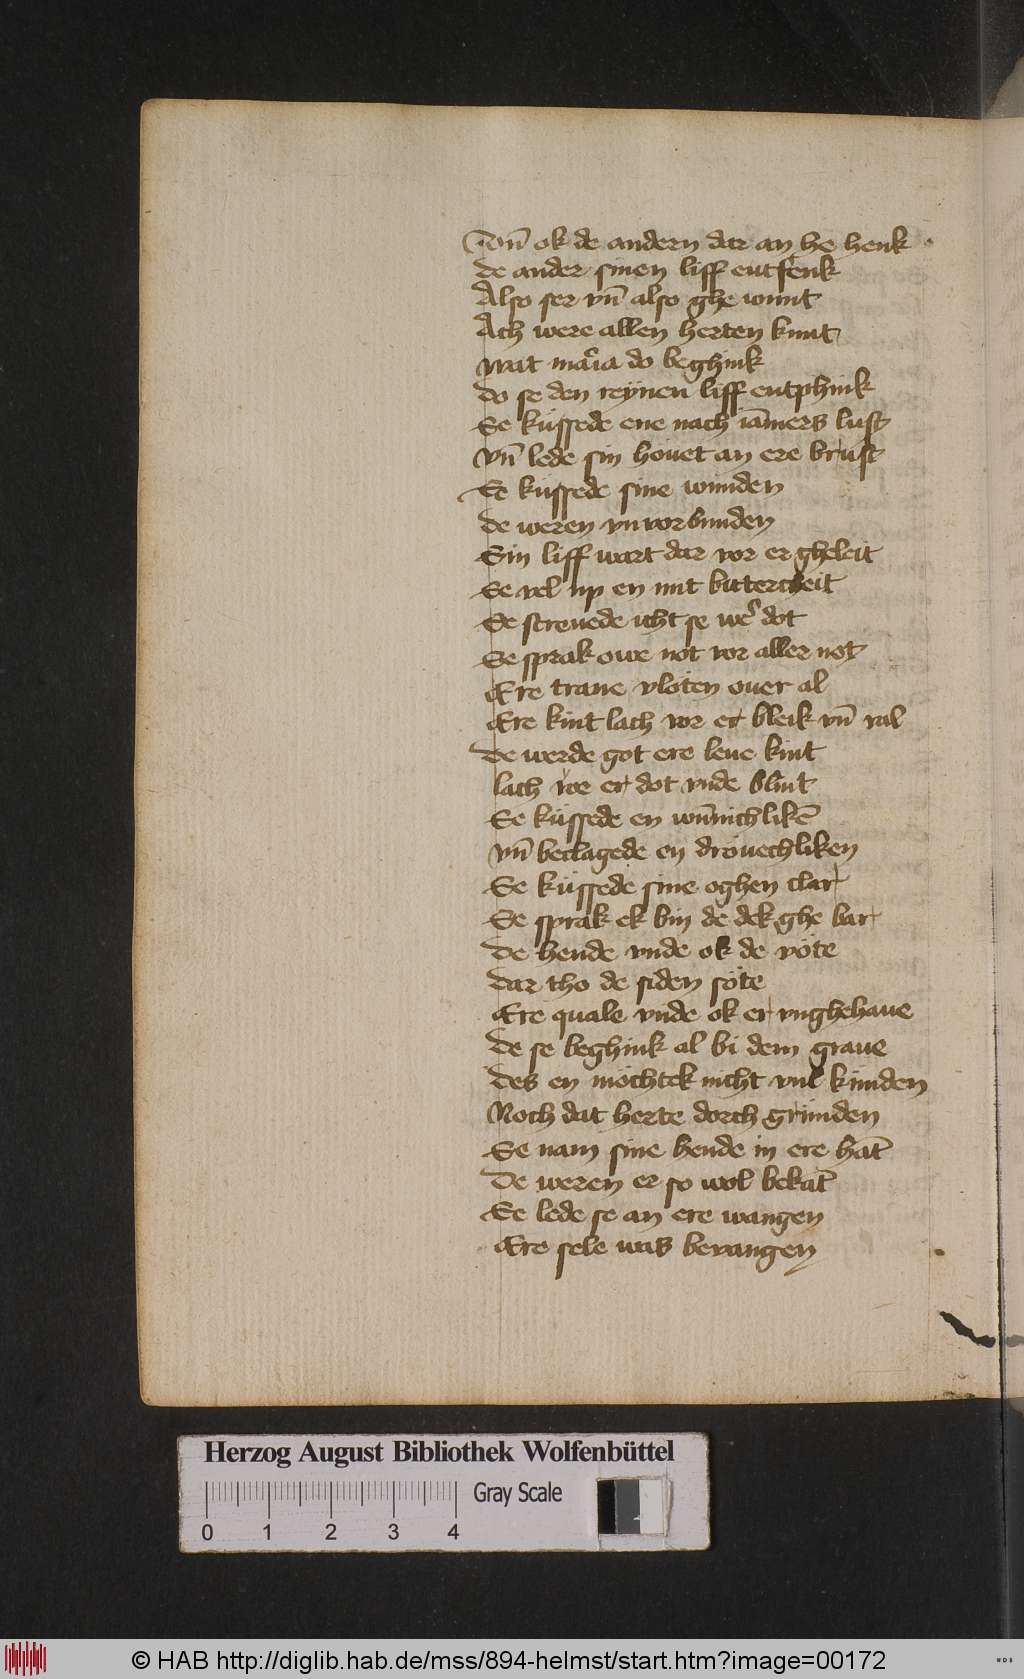 Vn̄ ok de andern dar an he henk
de ander sinen liff entfenk
Also ser vn̄ also ghe wunt
Ach were allen herten kunt
wat maria do beghink
do se den reynen liff entphink
Se küssede ene nach iāmers lust
vn̄ lede sin hövet an ere brust
Se küssede sine wunden
de weren vnvorbunden
Sin liff wart dar vor er gheleit
Se vel up en mit bittercheit
Se screuede icht se wer dot
Se sprak owe not vor aller not
Ere trane vloten ouer al
Ere kint lach vor er bleik vn̄ val
de werde got ere leue kint
lach vor er dot vnde blint
Se küssede en wn̄nichlikē
vn̄ beclagede en drövechliken
Se küssede sine oghen clar
Se sprak ek bin de dek ghe bar
de hende vnde ok de vöte
dar tho de siden söte
Ere quale vnde ok er vnghehaue
de se beghink al bi dem graue
des en möchtek nicht vul künden
Noch dat herte dorch gründen
Se nam sine hende in ere hāt
de weren er so wol bekāt
Se lede se an ere wangen
Ere sele was bevangen
Herzog August Bibliothek Wolfenbüttel
Gray Scale
0 1 2 3 4
© HAB http://diglib.hab.de/mss/894-helmst/start.htm?image=00172